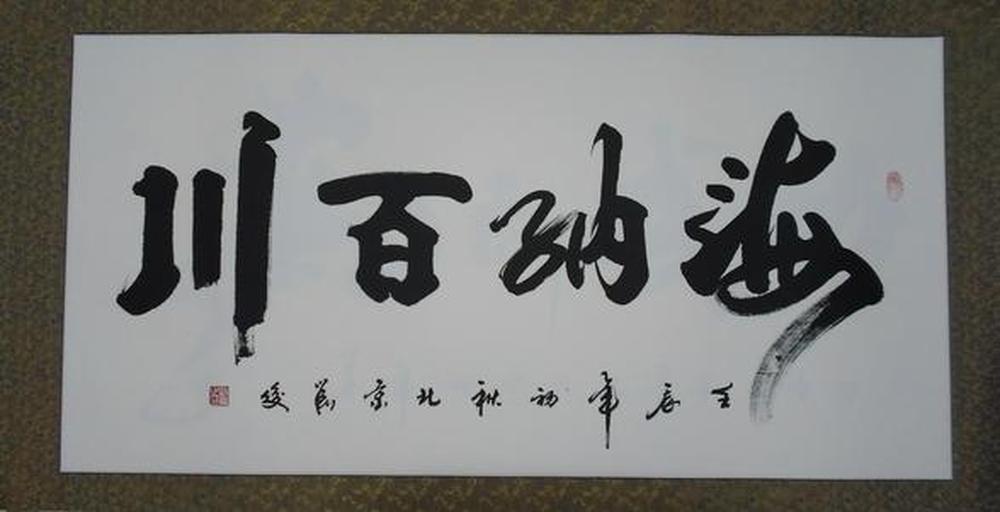 海纳百川
壬辰年初秋北京